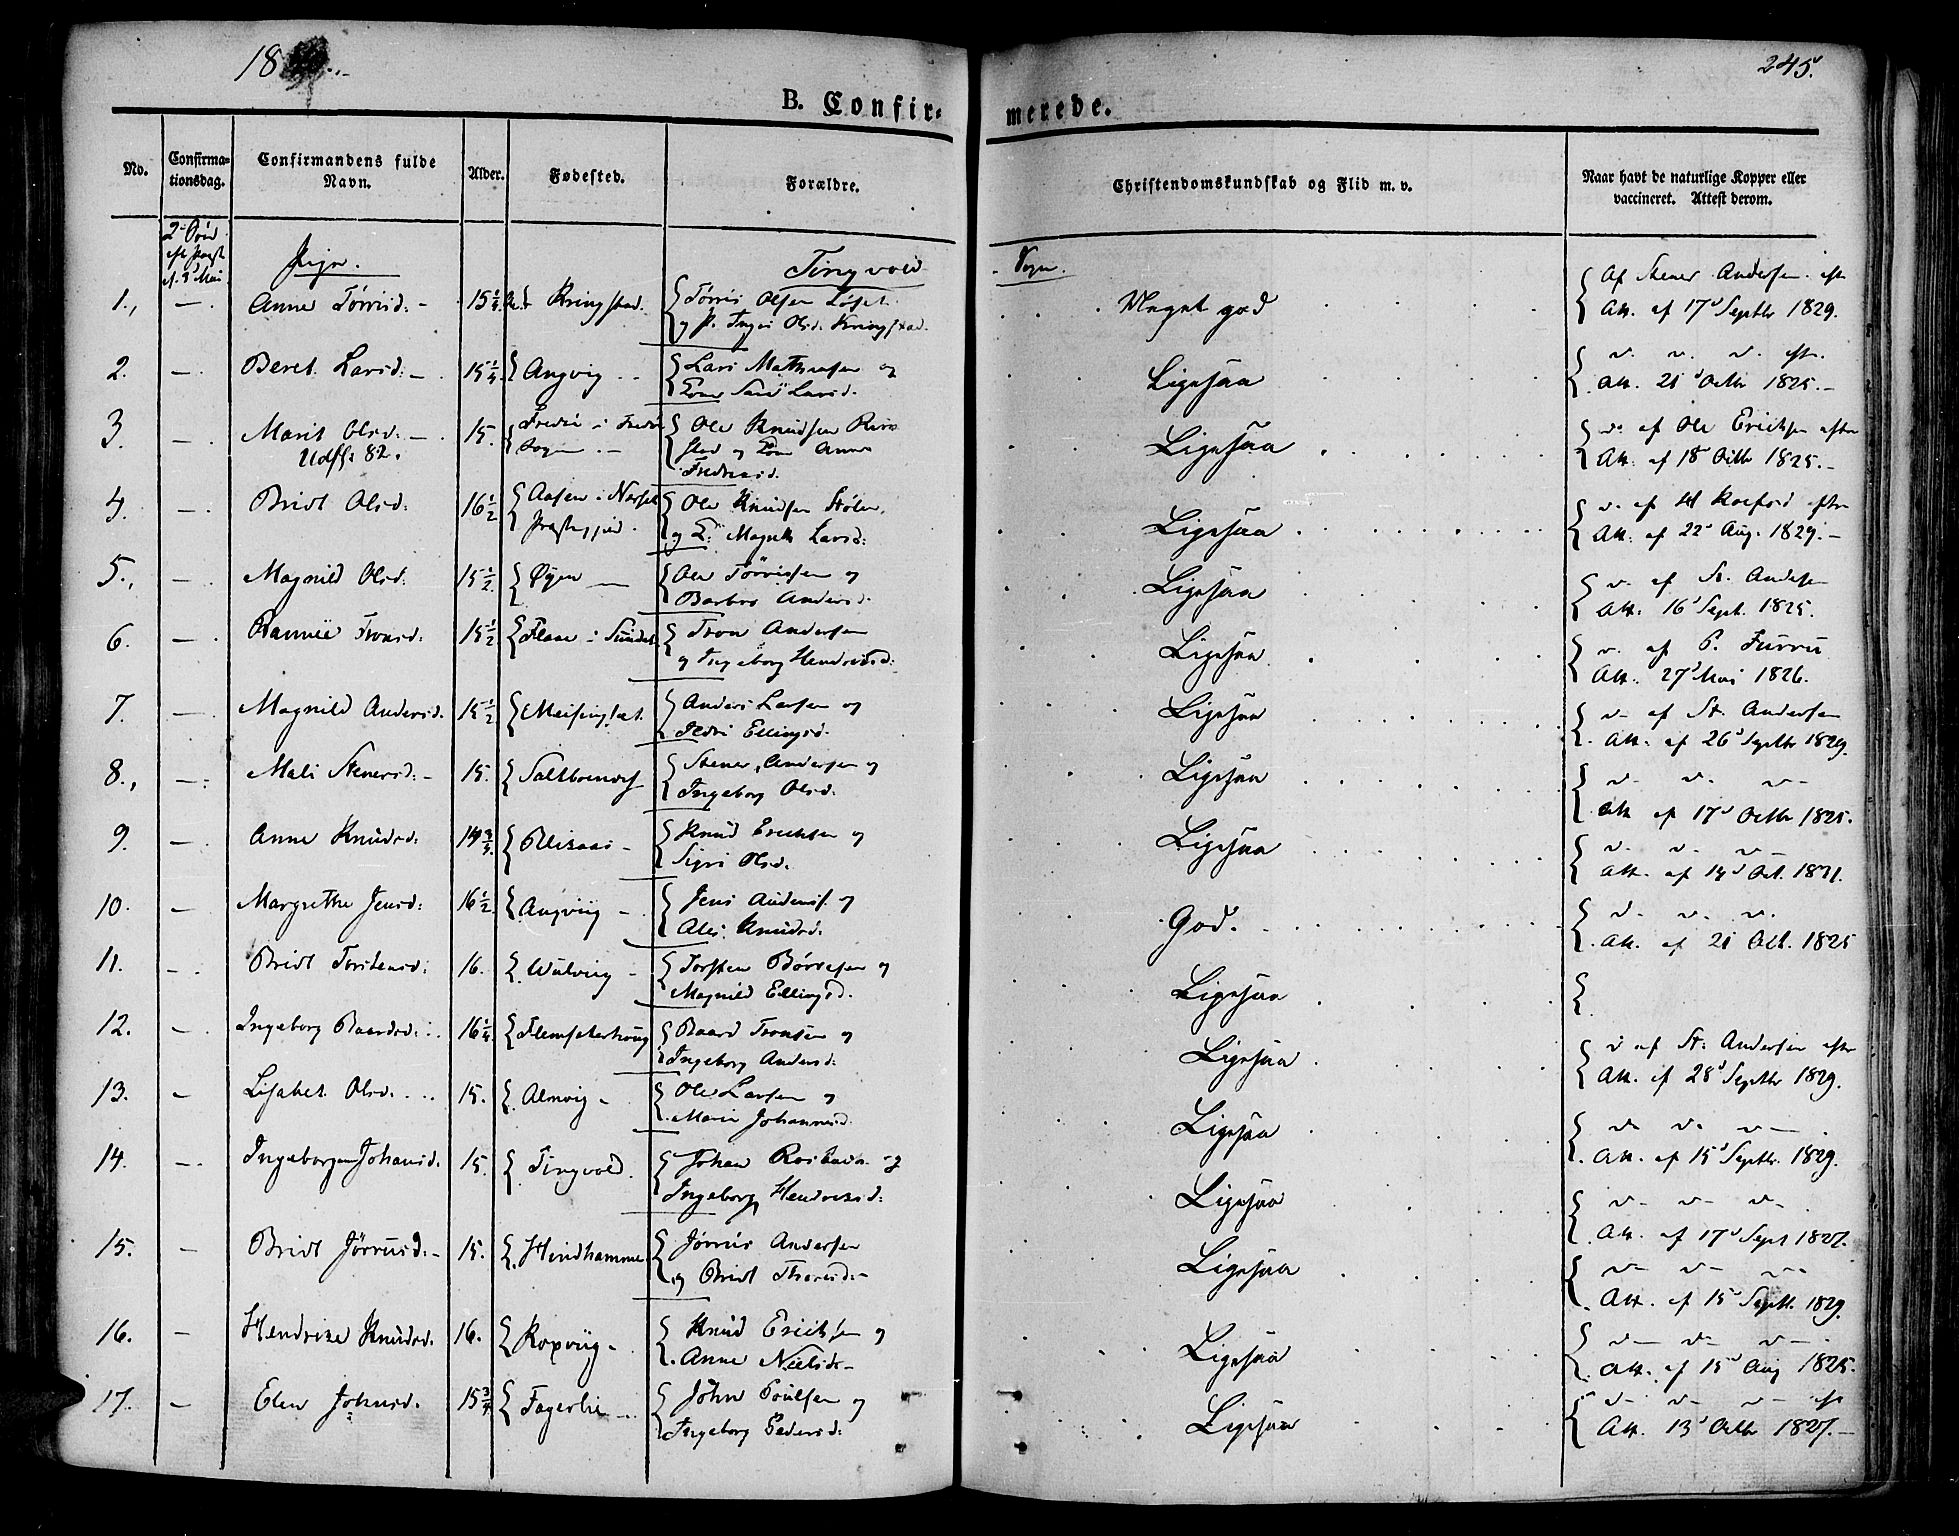 18
245.
B. Confir- merede.
No.
Confirma-
tionsdag.
Confirmandens fulde
Navn.
Alder.
Fødested.
Forældre.
Christendomskundskab og Flid m. v.
Naar havt de naturlige Kopper eller
vaccineret. Attest derom.
Piger.
Tingvold Sogn.
1., — Anne Törrisd: — 15 1/4 Kringstad. Törris Olsen
og Olsd. Kringstad. Meget god Af Stener Andersen eftr
Att. af 17d Septbr 1829.
2. — Beret Larsd: — 15 1/4 Angvig — Lars Mathiasen og
Larsd. Ligesaa v. v. v. eftr.
Att. 21d Octbr 1825.—
3. — Marit Olsd: — 15. Fredö i Fredö
Sogn — Ole Knudsen
og Anne
Udfl: 82.
Ligesaa v. af Ole Erichsen eftr
Att. af 18d Octbr 1825.—
4. — Bridt Olsd: 16 1/2 Aasen i
Præstegjeld. Ole Knudsen
og E: Magnild Larsd: Ligesaa v. af H eftr
Att. af 22d Aug. 1829.—
5., — Magnild Olsd: 15 1/2 Øyen — Ole Törrisen og
Barbro Andersd. Ligesaa v. af St. Andersen
Att: 16d Sept. 1825.
6. — Tronsd: 15 1/2 i Sundal Tron Andersen
og Ingeborg Hendriksd: Ligesaa v. af P. Furru
Att. 27d Mai 1826.
7. — Magnild Andersd. 15 1/2 Meisingset. Anders Larsen og
Ellingsd. Ligesaa v— af St. Andersen
Att. af 26d Septbr 1829.
8., — Mali Stenersd: — 15. Stener Andersen og
Ingeborg Olsd: Ligesaa v— v. v—
Att af 17d Octbr 1825.
9. — Anne Knudsd: 14 3/4 — Knud Erichsen og
Sigri Olsd. Ligesaa v. v. v—
Att. af 14d Oct. 1821.
10. — Margrethe Jensd: 16 1/2 Angviig — Jens Anders. og
Ales Knudsd. God. v. v. v.
Att. af 21 Oct. 1825
11. — Bridt Torstensd: 16. Wulvig — Torsten Börresen og
Magnild Ellingsd. Ligesaa
12. — Ingeborg Baardsd: 16 1/4 Flemsæterhoug Baard Tronsen og
Ingeborg Andersd: Ligesaa v af St. Andersen eftr
Att. af 28d Septbr 1829.
13. — Lisabet Olsd. 15. Almvig — Ole Larsen og
Marie Johannesd. Ligesaa v. v. v—
Att. af 15d Septbr. 1829.
14. — Ingeborg Johansd. 15. Tingvold. Johan og
Ingeborg Hendriksd: Ligesaa v— v— v.
Att. af 17d Sept 1827.
15. — Bridt Jörrisd: — 15. Hindhammer Jörris Andersen
og Bridt Ligesaa v— v— v..
Att. af 15d Septb. 1829.
16. — Hendrike Knudsd. 16. Roxviig — Knud Erichsen og
Anne Nielsd— Ligesaa v— v— v—
Att. af 15d Aug 1825.
17. — Elen Johnsd. 15 3/4 Fagerlie — John Poulsen og
Ingeborg Pedersd: Ligesaa v— v— v— eftr
Att. 13d Octbr 1827.—